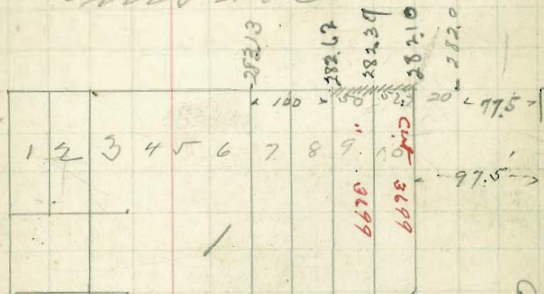 282.13
282.67
282.39
282.10
282.0
100
50
52.5
20
77.5
1 2 3 4 5 6 7 8 9 10
"
Cut
3699
3699
97.5